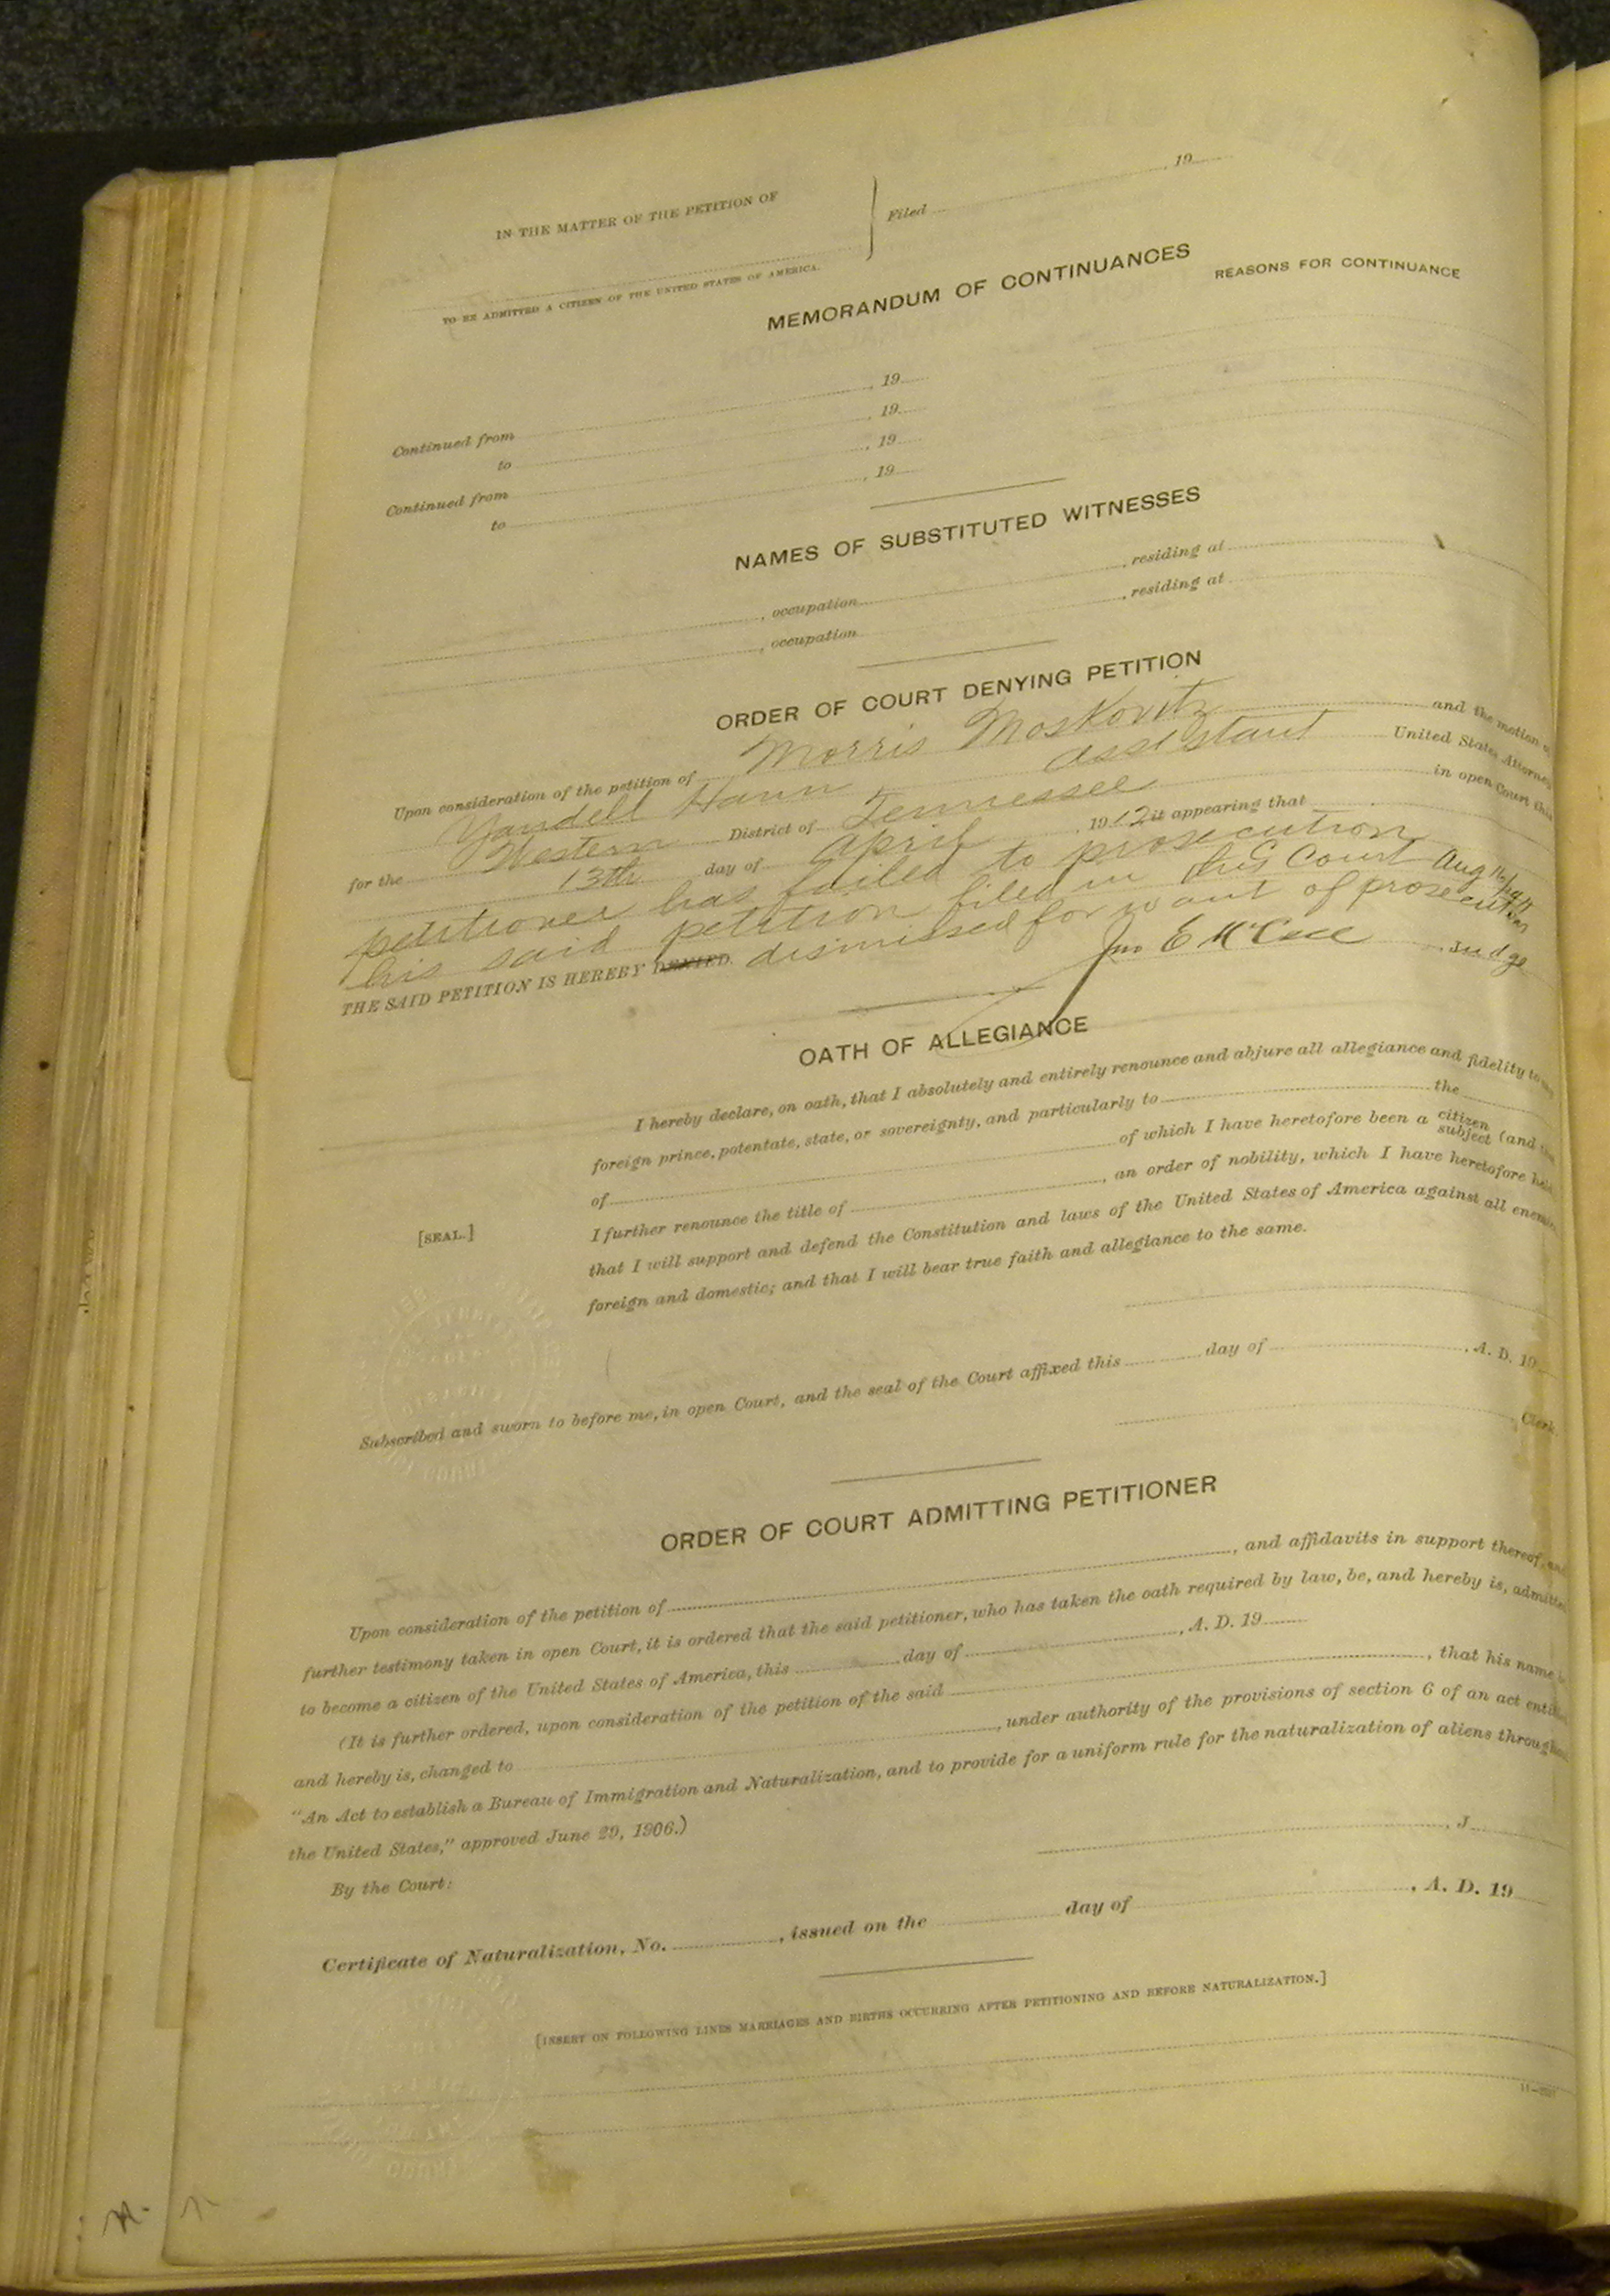 IN THE MATTER OF THE PETITION OF
Filed , 19
TO BE ADMITTED A CITIZEN OF THE UNITED STATES OF AMERICA.
MEMORANDUM OF CONTINUANCES
REASONS FOR CONTINUANCE
Continued from , 19
to , 19
Continued from , 19
to , 19
NAMES OF SUBSTITUTED WITNESSES
, occupation , residing at
, occupation , residing at
ORDER OF COURT DENYING PETITION
Upon consideration of the petition of Morris Moskovitz and the motion of
Yandell Hann assistant United States Attorney
for the Western District of Tennessee in open Court this
13th day of April , 1912 it appearing that
petitioner has failed to prosecution
his said petition filed in this Court Aug
THE SAID PETITION IS HEREBY DENIED. dismissed for want of prosecution
Jno E McCall , Judge
OATH OF ALLEGIANCE
I hereby declare, on oath, that I absolutely and entirely renounce and abjure all allegiance and fidelity to any
foreign prince, potentate, state, or sovereignty, and particularly to the
of of which I have heretofore been a citizen subject (and that
I further renounce the title of , an order of nobility, which I have heretofore held
that I will support and defend the Constitution and laws of the United States of America against all enemies,
foreign and domestic; and that I will bear true faith and allegiance to the same.
[SEAL.]
Subscribed and sworn to before me, in open Court, and the seal of the Court affixed this day of , A. D. 19
, Clerk.
ORDER OF COURT ADMITTING PETITIONER
Upon consideration of the petition of , and affidavits in support thereof, and
further testimony taken in open Court, it is ordered that the said petitioner, who has taken the oath required by law, be, and hereby is, admitted
to become a citizen of the United States of America, this day of , A. D. 19
(It is further ordered, upon consideration of the petition of the said , that his name
and hereby is, changed to , under authority of the provisions of section 6 of an act entitled
"An Act to establish a Bureau of Immigration and Naturalization, and to provide for a uniform rule for the naturalization of aliens throughout
the United States," approved June 29, 1906.)
By the Court:
, J
Certificate of Naturalization, No. , issued on the day of , A. D. 19
[INSERT ON FOLLOWING LINES MARRIAGES AND BIRTHS OCCURRING AFTER PETITIONING AND BEFORE NATURALIZATION.]